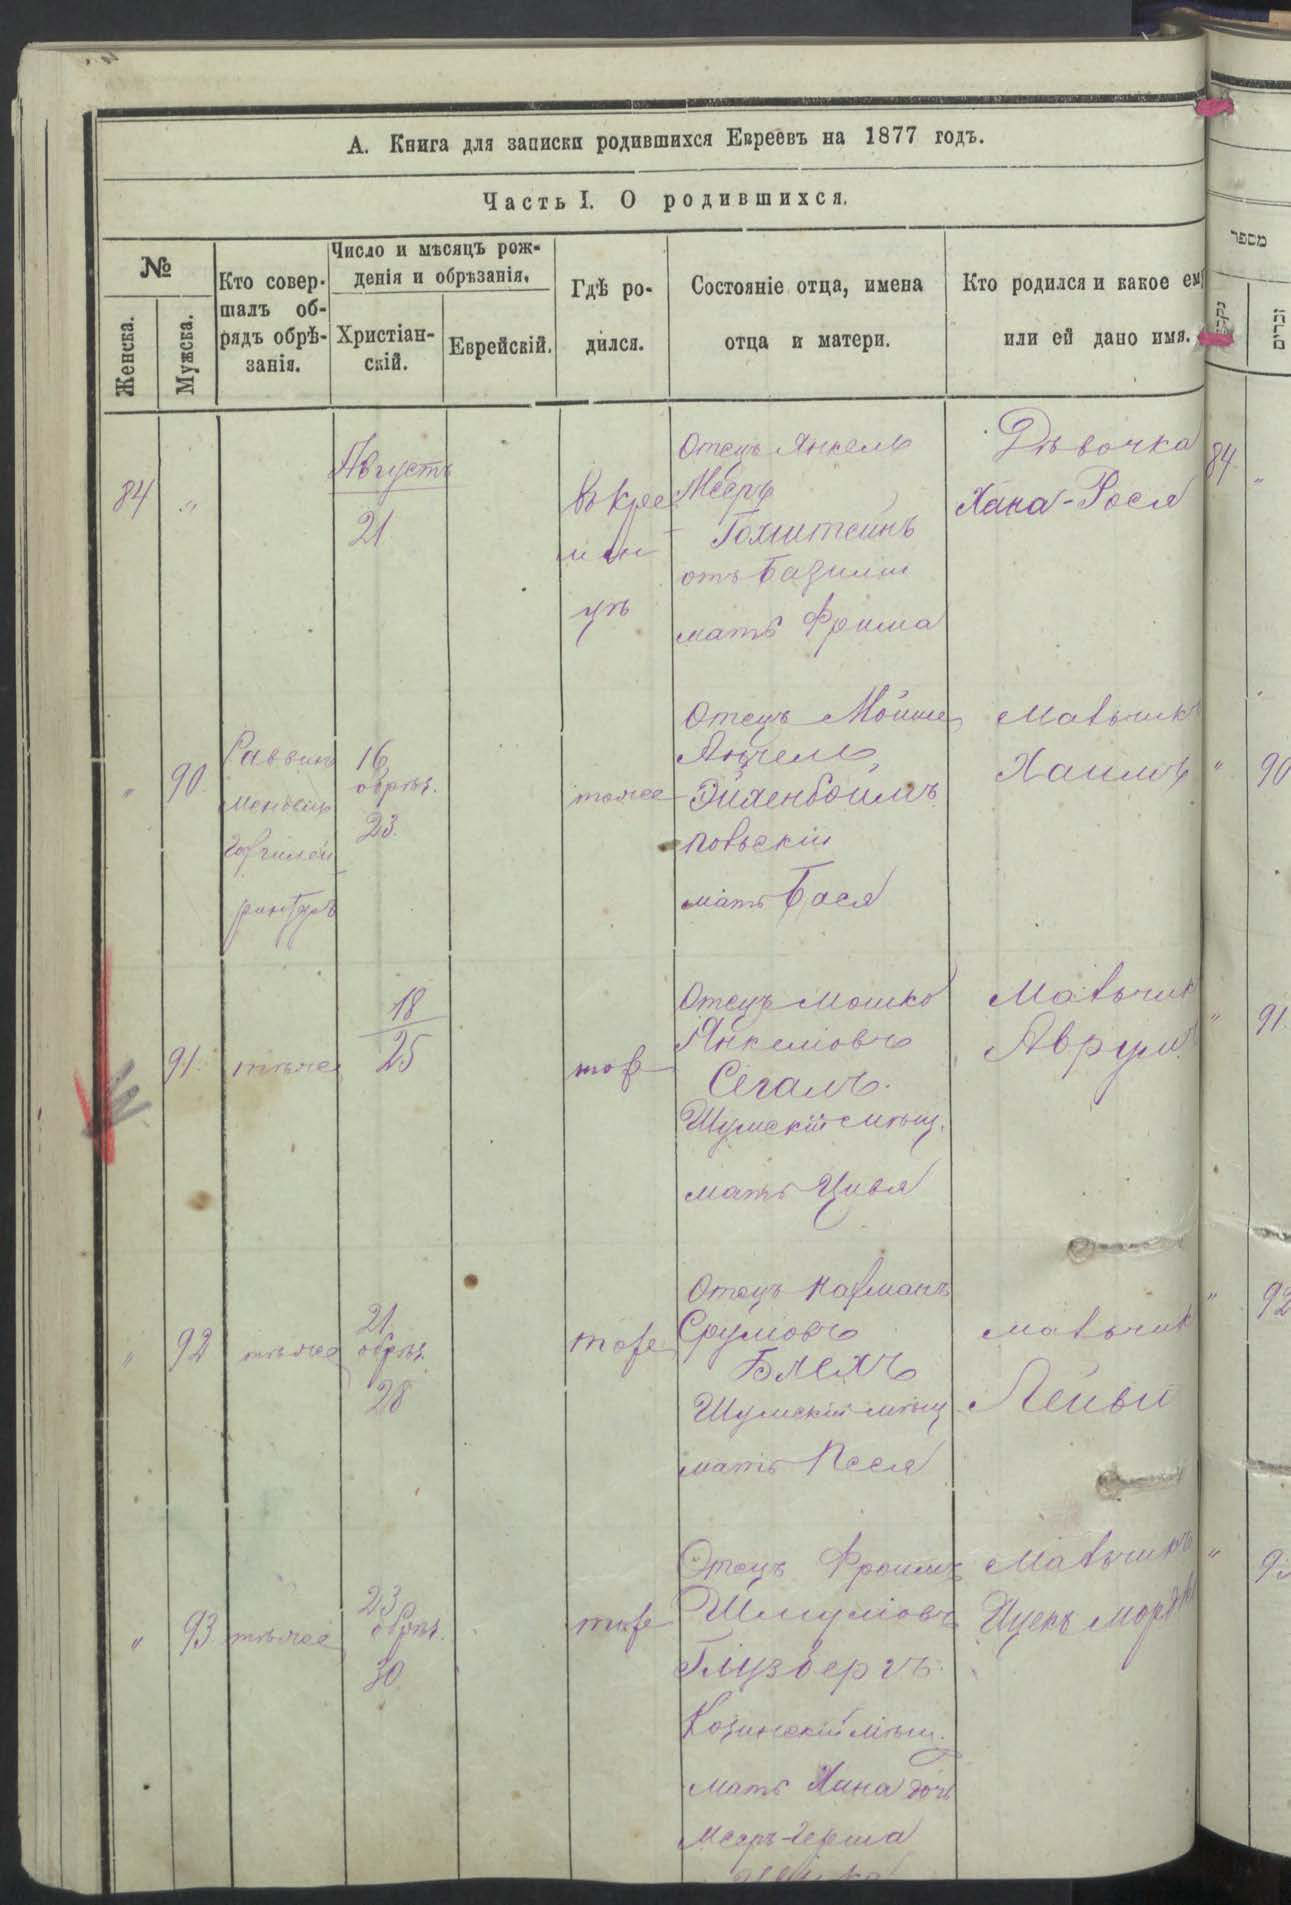 А. Книга для записки родившихся Евреевъ на 1877 годъ.
Часть I. О родившихся.
№
Женска.
Мужска.
Кто совер-
шалъ об-
рядъ обрѣ-
занія.
Число и мѣсяцъ рож-
денія и обрѣзанія.
Христіан-
скій.
Еврейскій.
Гдѣ ро-
дился.
Состояніе отца, имена
отца и матери.
Кто родился и какое ему
или ей дано имя.
מספר
זכרים
84
"
Августъ
21
въ Кре
мен
цѣ
Отецъ Янкель
Мееръ
Гохштейнъ
отъ Базиліи
мать Фрима
Дѣвочка
Хана-Рося
84
"
"
90
Раввинъ
16
обрѣз.
23
тоже
Отецъ Мойше
Анчель
Эйхенбоймъ
мать Бася
Мальчикъ
Хаимъ
"
90
91
тоже
18
25
тоже
Отецъ Мошко
Янкеліовъ
Сегалъ
Шумскій мѣщ.
мать Цивя
Мальчик
Аврумъ
"
91
"
92
тоже
21
обрѣз.
28
тоже
Отецъ Нахманъ
Срумовъ
Блехъ
Шумскій мѣщ
мать Песя
мальчик
Лейви
"
92
"
93
тоже
23
обрѣз.
30
тоже
Отецъ Фроимъ
Шмуліовъ
Глузбергъ
Козинскій мѣщ.
мать Хана дочь
Мееръ-Герша
Мальчикъ
Ицекъ Мордк
"